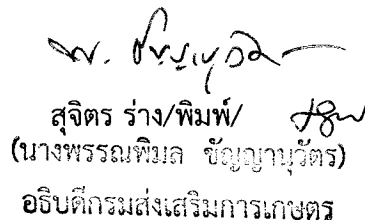 สุจิตร ร่าง/พิมพ์/
(นางพรรณพิมล ชัญญานุวัตร)
อธิบดีกรมส่งเสริมการเกษตร